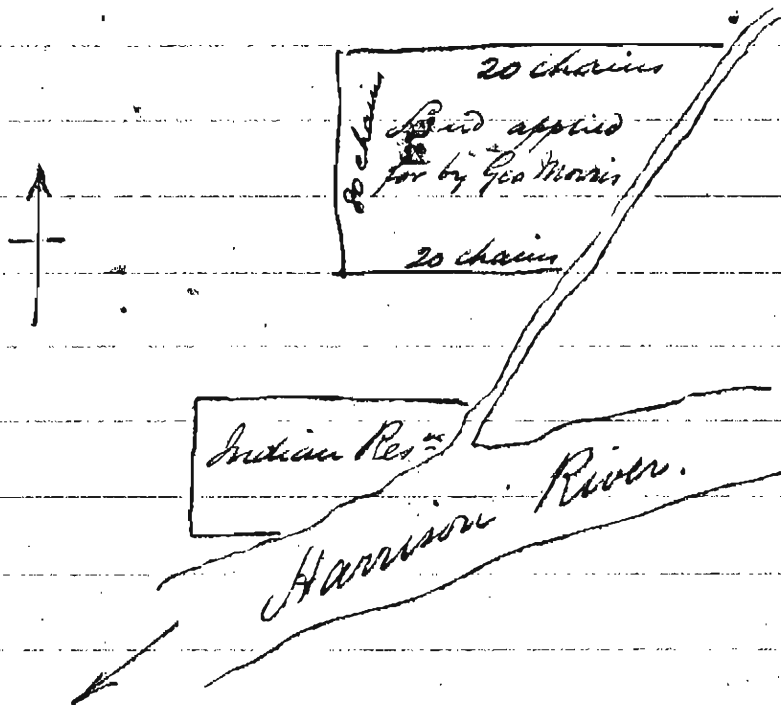 20 chains
80 chains
Land applied
for by Geo Morris
20 chains
Indian Resve
Harrison River.